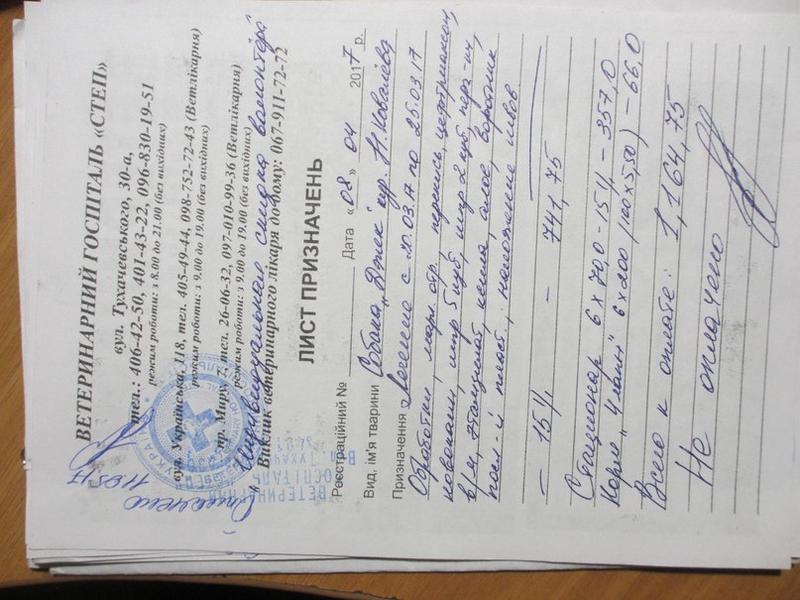 ВЕТЕРИНАРНИЙ ГОСПІТАЛЬ «СТЕП»
вул. Тухачевського, 30-а,
тел.: 406-42-50, 401-43-22, 096-830-19-51
режим роботи: з 8.00 до 21.00 (без вихідних)
вул. Українська, 118, тел. 405-49-44, 098-752-72-43 (Ветлікарня)
режим роботи: з 9.00 до 19.00 (без вихідних)
пр. Миру, 7, тел. 26-06-32, 097-010-99-36 (Ветлікарня)
режим роботи: з 9.00 до 19.00 (без вихідних)
Индивидуальная скидка волонтёра
Виклик ветеринарного лікаря додому: 067-911-72-72
Оплачено 11.05.17
ВЕТЕРИНАРНИЙ
ГОСПІТАЛЬ
ЛИСТ ПРИЗНАЧЕНЬ
Реєстраційний № Дата «08» 04 2017 р.
Вид, ім'я тварини Собака "Джек" кур. Н. Ковалёва
Призначення Лечение с 20.03.17 по 25.03.17
Обработки, марл. обр. перекись,
новокаин, шпр 5 куб, шпр 2 куб,
в/м,
наложение швов
— 15% — 741,75
Стационар 6 x 70,0 - 15% - 357,0
Корм 6 x 200 (100 x 5,50) - 66,0
Всего к оплате: 1,164,75
Не оплачено